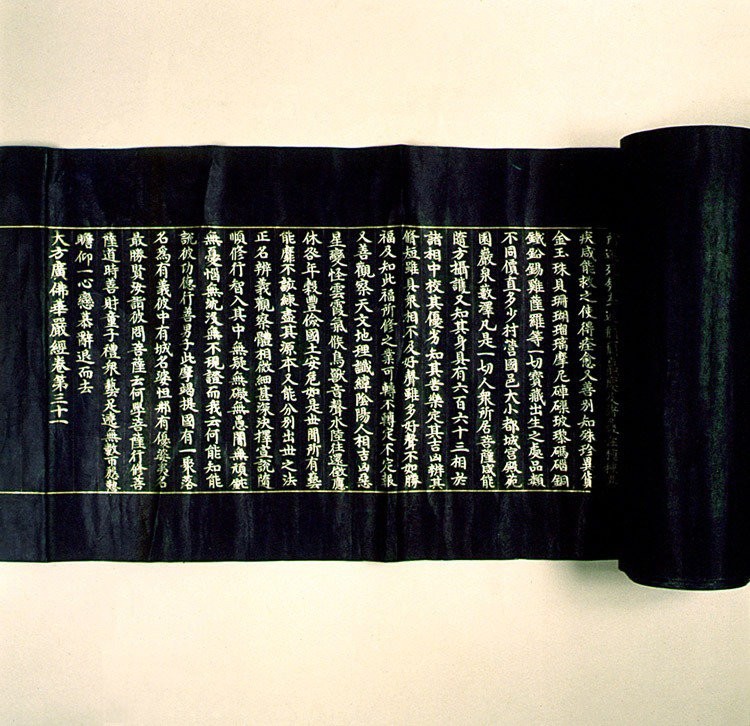 疾咸能救之使得痊愈又善別知殊珍異寶
金玉珠貝珊瑚瑠璃摩尼硨磲玻瓈碼碯銅
鐵鉛錫雞薩羅等一切寶藏出生之處品類
不同價直多少村營國邑大小都城宮殿苑
園巖泉藪澤凡是一切人眾所居菩薩咸能
隨方攝護又知其身具有六百六十三相於
諸相中校其優劣知其苦樂定其吉凶辨其
脩短雖具眾相不及好聲雖多好聲不如勝
福及知此福所修之業可轉不轉定不定報
又善觀察天文地理讖緯陰陽人相吉凶惡
星變怪雲霞氣候鳥獸音聲水陸往還徵應
休咎年穀豐儉國土安危如是世間所有藝
能靡不該練盡其源本又能分別出世之法
正名辨義觀察體相微細甚深決擇宣說隨
順修行智入其中無疑無礙無愚闇無頑鈍
無憂惱無沈沒無不現證而我云何能知能
說彼功德行善男子此摩竭提國有一聚落
名為有義彼中有城名婆怛那有優婆夷名
最勝賢汝詣彼問菩薩云何學菩薩行修菩
薩道時善財童子禮眾藝足遶無數帀慇懃
瞻仰一心戀慕辭退而去
大方廣佛華嚴經卷第三十一